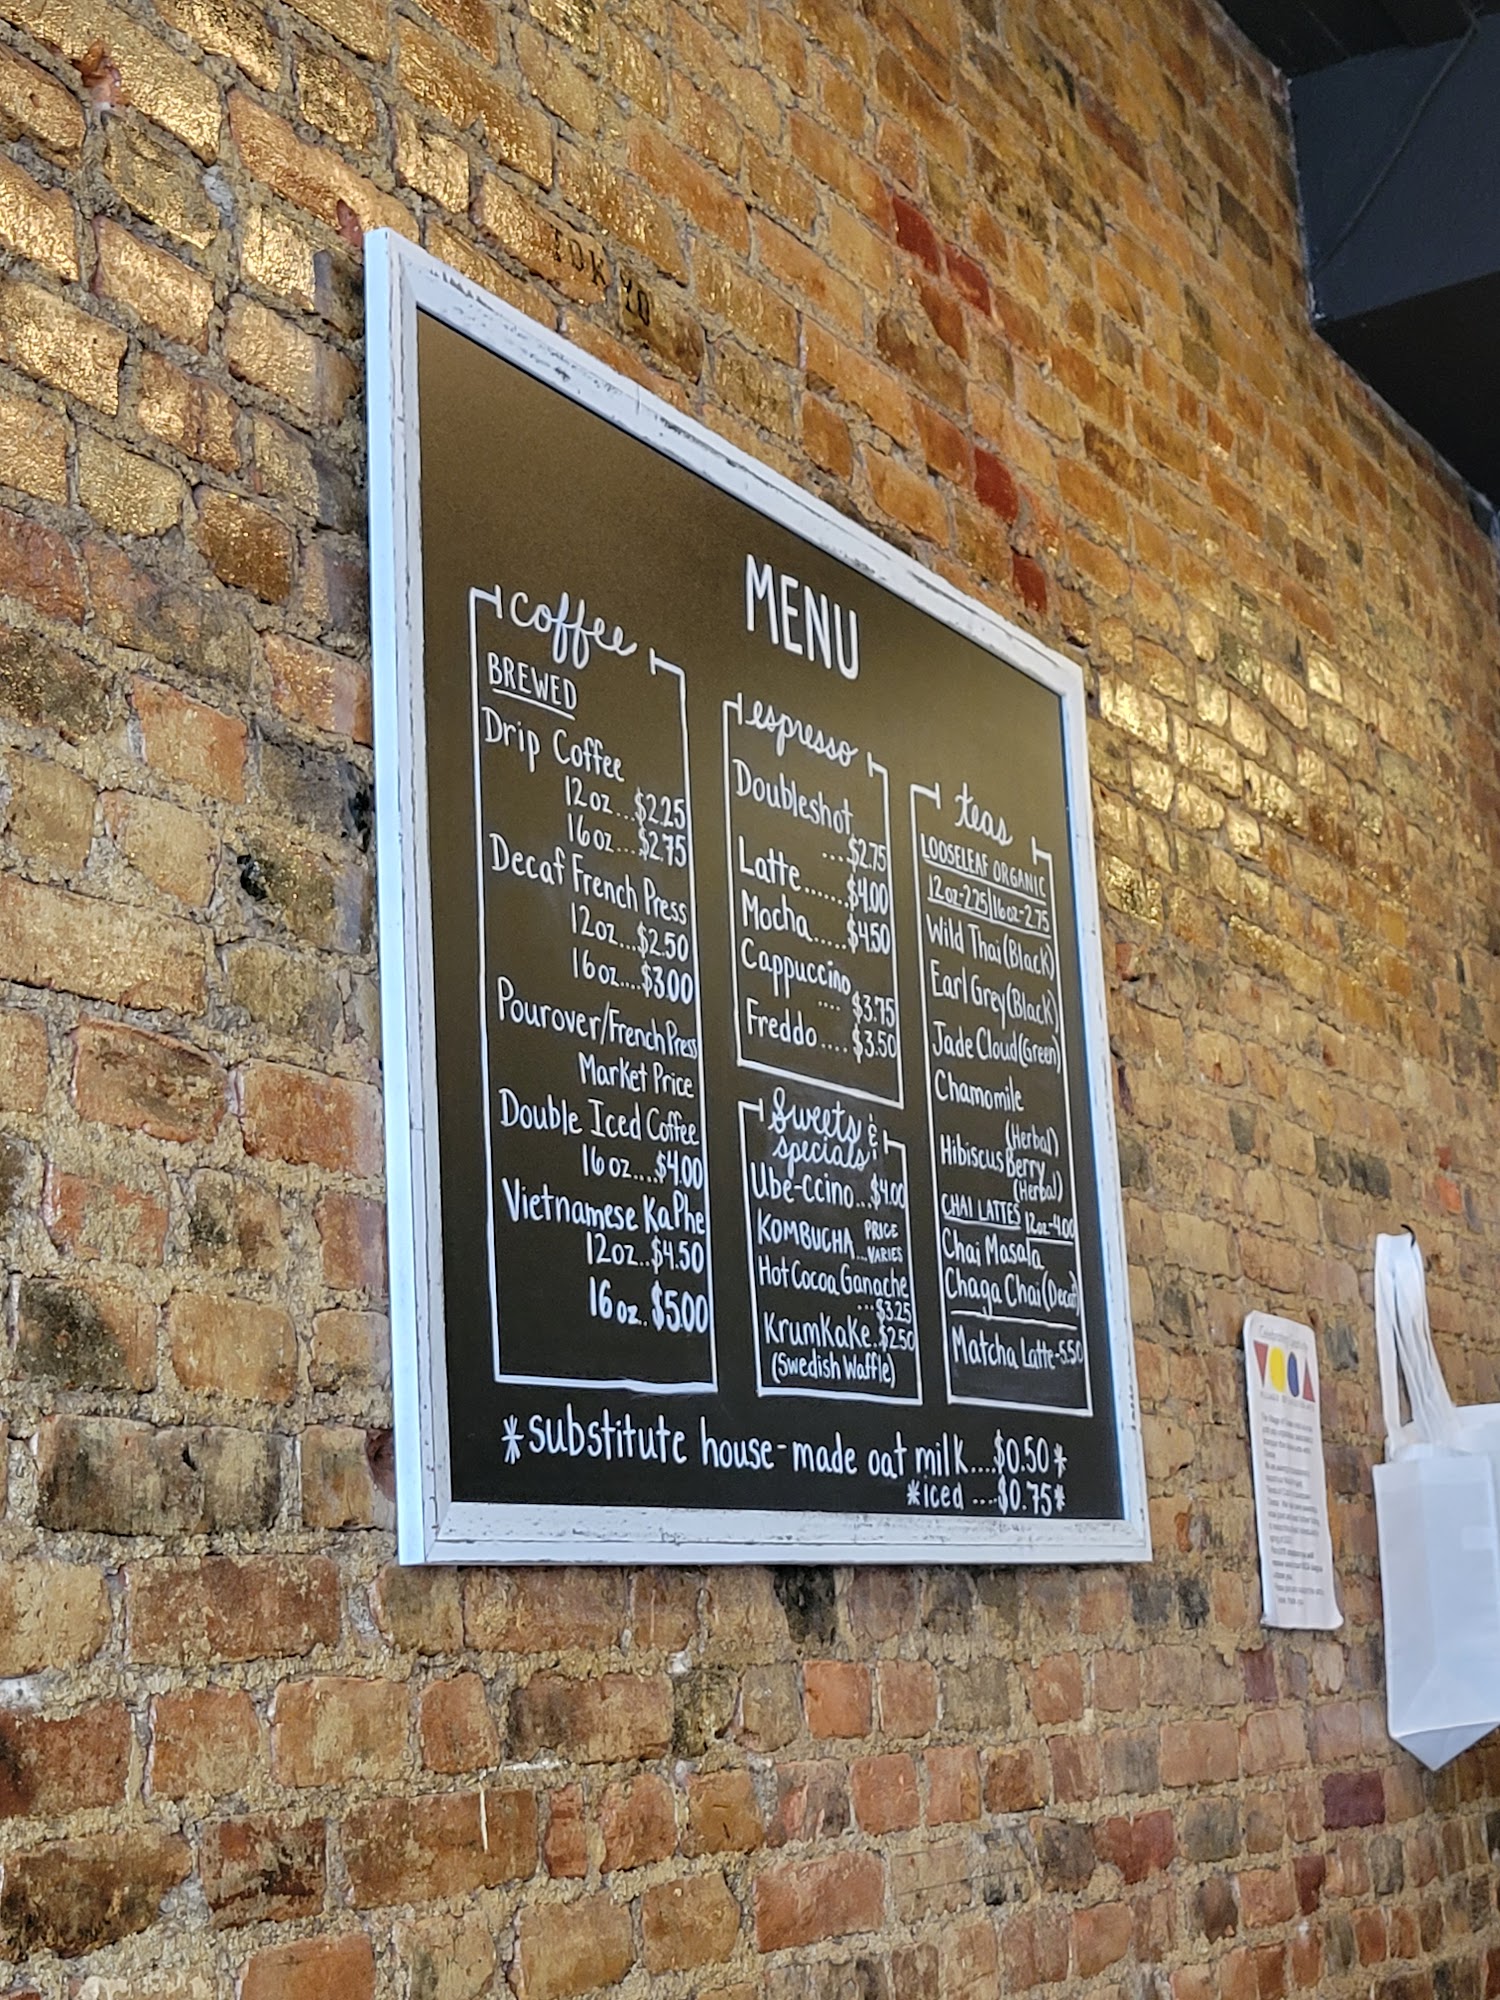 MENU
coffee
BREWED
Drip Coffee
12oz...$2.25
16oz....$2.75
Decaf French Press
12oz...$2.50
16oz....$3.00
Pourover/French Press
Market Price
Double Iced Coffee
16oz....$4.00
Vietnamese KaPhe
12oz..$4.50
16oz..$5.00
espresso
Doubleshot
....$2.75
Latte.....$4.00
Mocha.....$4.50
Cappuccino
....$3.75
Freddo....$3.50
Sweets &
specials
Ube-ccino...$4.00
KOMBUCHA PRICE
...VARIES
Hot Cocoa Ganache
...$3.25
KrumKaKe.$2.50
(Swedish Waffle)
teas
LOOSELEAF ORGANIC
12oz-2.25|16oz-2.75
Wild Thai (Black)
Earl Grey (Black)
Jade Cloud (Green)
Chamomile
(Herbal)
Hibiscus Berry
(Herbal)
CHAI LATTES 12oz-4.00
Chai Masala
Chaga Chai (Decaf)
Matcha Latte-5.50
*substitute house-made oat milk....$0.50*
*iced ....$0.75*